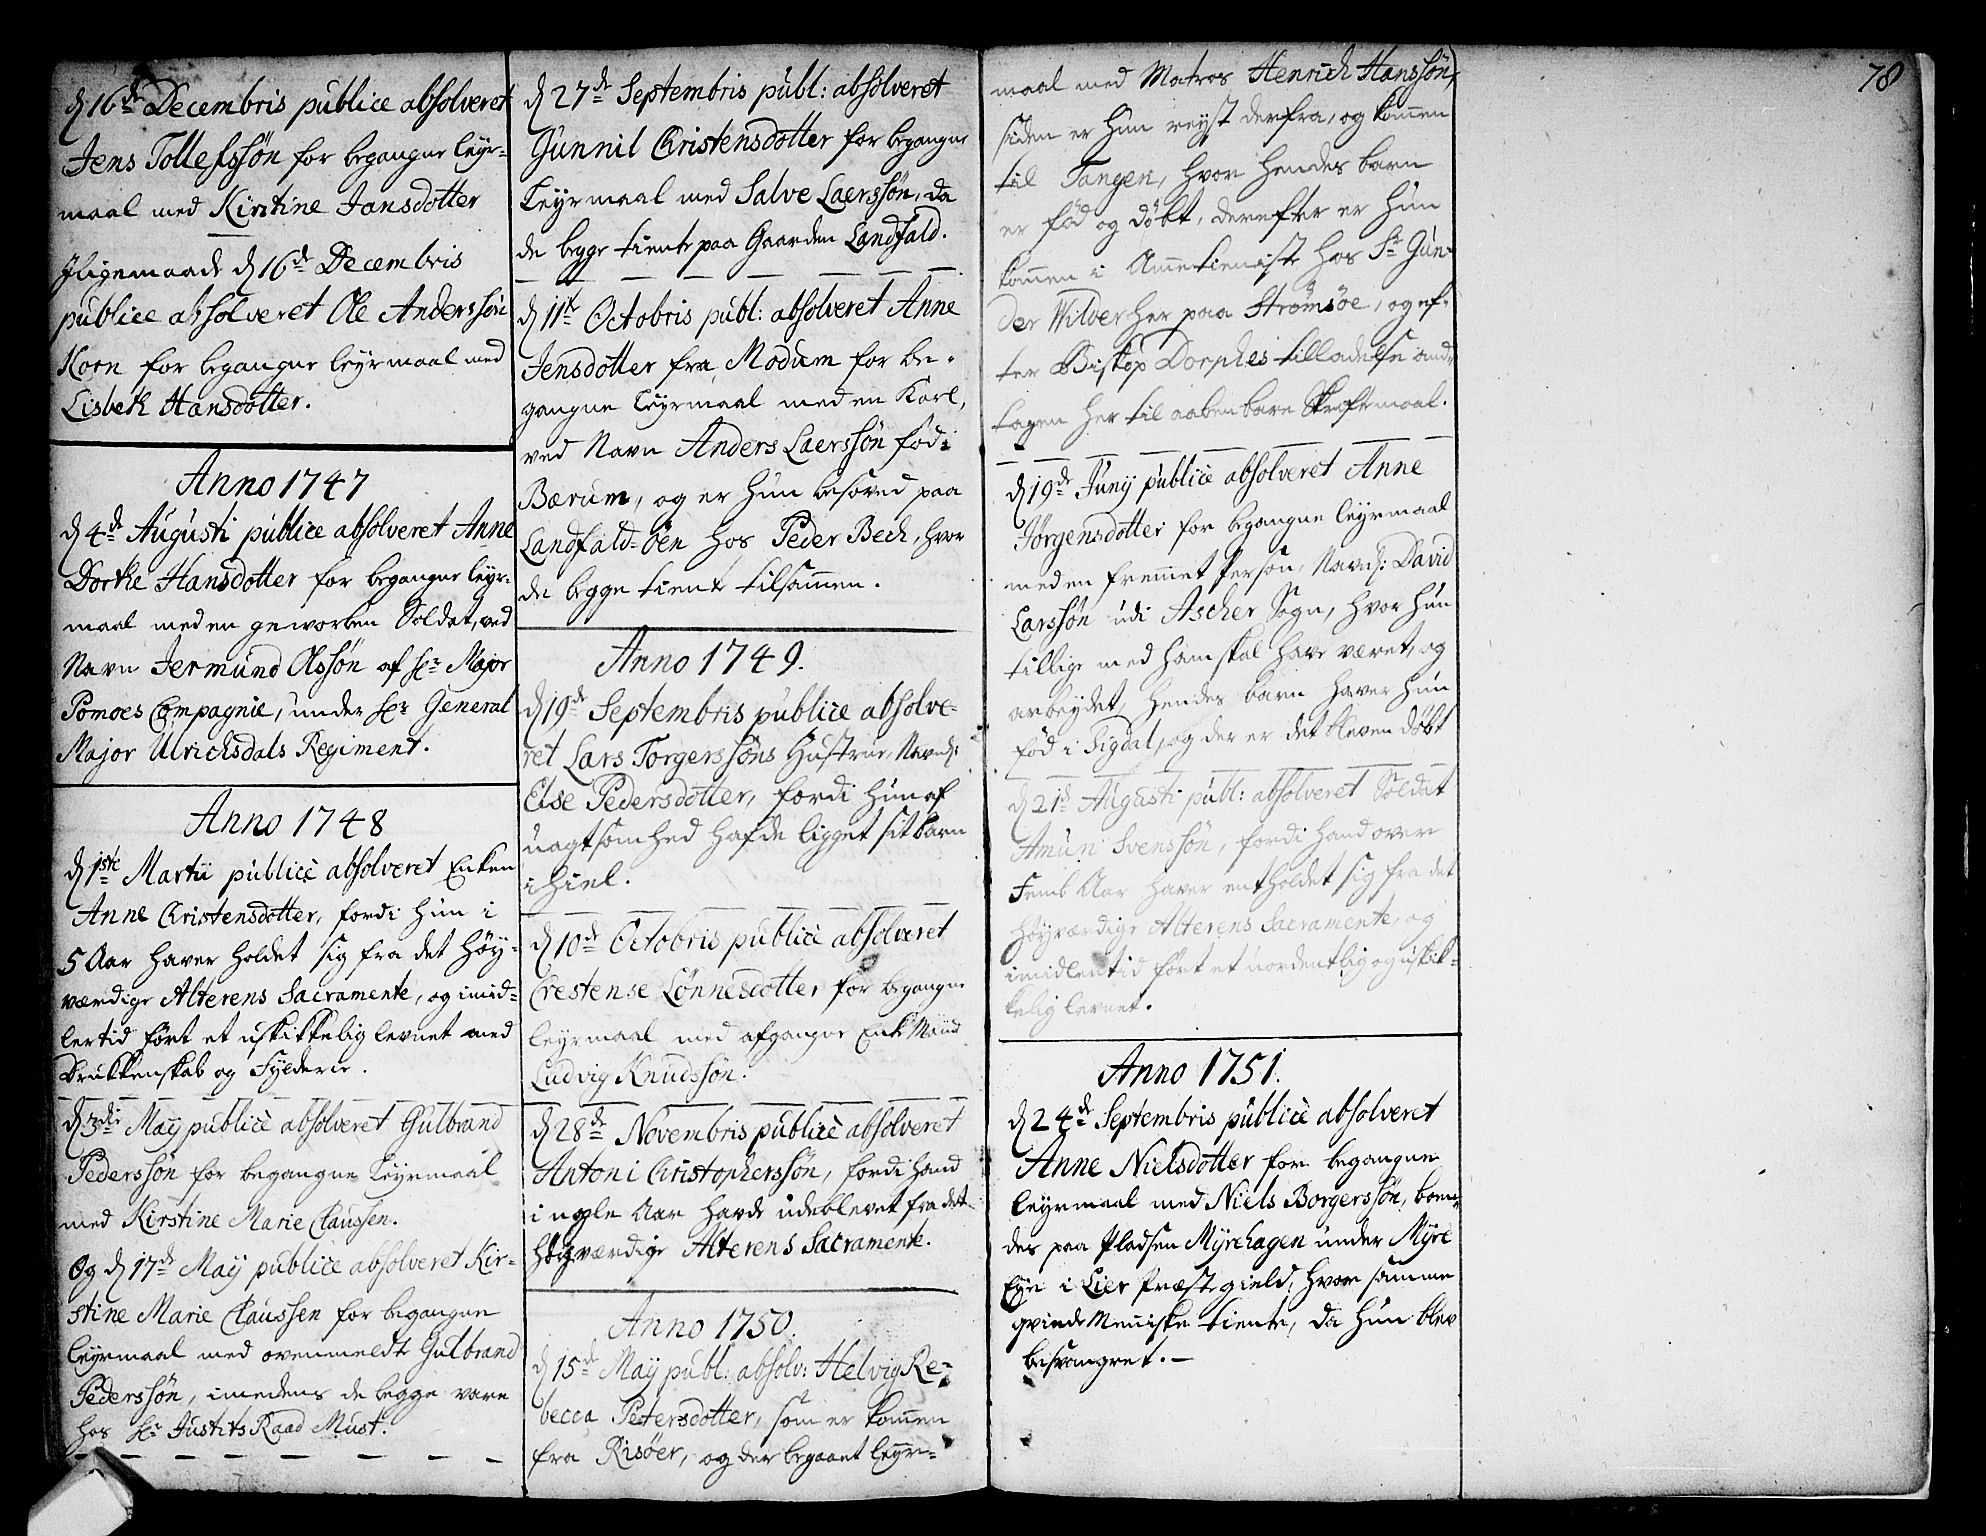 d 16de Decembris publice absolveret
Jens Tollefssøn for begangne Leyr-
maal med Kirstine Jansdotter
Jligemaade d 16de Decembris
publice absolveret Ole Anderssøn
Korn for begangne leyrmaal med
Lisbeth Hansdotter.
Anno 1747
d 4de Augusti publice absolveret Anne
Dorthe Hansdotter for begangne leyr-
maal med en geworben Soldat, ved
Navn Jermund Olssøn af Hr Major
Pomoes Compagnie, under Hr General
Major Ulrichsdals Regiment.
Anno 1748
d 1ste Martii publicè absolveret Enken
Anne Christensdotter, fordi hun i
5 Aar haver holdet sig fra det Høy-
værdige Alterens Sacramente, og imid-
lertid ført et uskikkelig levnet med
Drukkenskab og Fylderie.
d 3die Maij publicè absolveret Gulbrand
Pederssøn for begangne Leyrmaal
med Kirstine Marie Claussen.
Og d 17de Maij publicè absolveret Kir-
stine Marie Claussen for begangne
leyrmaal med ovenmeldte Gulbrand
Pederssøn, imedens de begge vare
hos Hr Justits Raad Must.
d 27de Septembris publ: absolveret
Gunnil Christensdotter for begangne
Leyrmaal med Salve Laerssøn, da
de begge tiente paa Gaarden Landfald.
d 11te Octobris publ: absolveret Anne
Jensdotter fra Modum for be-
gangne Leyrmaal med en Karl,
ved Navn Anders Laerssøn fød i
Bærum, og er hun besoved paa
Landfald-øen hos Peder Bech, hvor
de begge tiente tilsammen.
Anno 1749.
d 19de Septembris publice absolve-
ret Lars Torgerssøns Hustrue, Navnl:
Else Pedersdotter, fordi hun af
uagtsomhed hafde ligget sit barn
ihiel.
d 10de Octobris publicè absolveret
Crestense Lönnesdotter for begangne
leyrmaal med afgangne Enke Mand
Ludvig Knudssøn.
d 28de Novembris publicè absolveret
Antoni Christopherssøn, fordi hand
i nogle Aar havde udeblevet fra det
høyværdige Alterens Sacramente.
Anno 1750.
d 15de Maij publ: absolv: Helvig Re-
becca Petersdotter, som er kommen
fra Risøer, og der begaaet leyr-
78
maal med Matros Henrich Hanssøn,
siden er hun reyst derfra, og kommen
til Tangen, hvor hendes barn
er fød og døbt, derefter er hun
kommen i Ammetieniste hos Sr Gun-
der Wilver her paa Strømsøe, og ef-
ter Biskop Dorphes tilladelse and-
tagen her til aabenbare Skriftemaal.
d 19de Junij publicè absolveret Anne
Jørgensdotter for begangne leyrmaal
med en fremmet Person, Navnl: David
Larssøn udi Ascher Sogn, hvor hun
tillige med ham skal have været, og
arbeydet, hendes barn haver hun
fød i Sigdal, og der er det bleven døbt
d 21de Augusti publ: absolveret Soldat
Amun Svenssøn, fordi hand over
Femb Aar haver entholdet sig fra det
Høyværdige Alterens Sacramente, og
imidlertid ført et uordentlig og uskik-
kelig levnet.
Anno 1751.
d 24de Septembris publicè absolveret
Anne Nielsdotter for begangne
leyrmaal med Niels Borgerssøn, boen-
des paa Pladsen Myrehagen under Myre
Eye i Lier Præstegield, hvor samme
qvinde Menniske tiente, da hun blev
besvangret. -